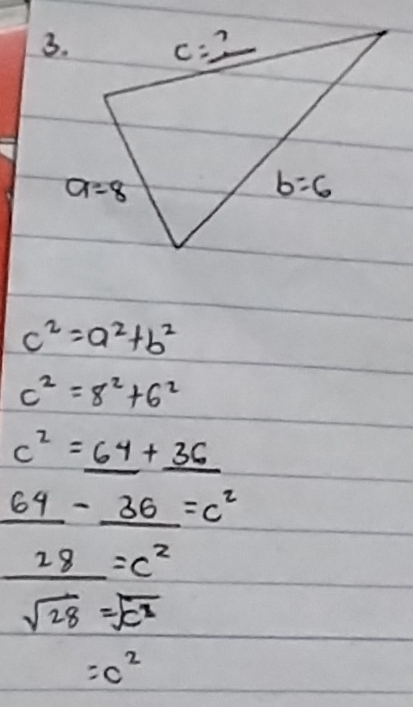 3.
c=?
a=8
b=6
c²=a²+b²
c²=8²+6²
c²=64+36
64-36=c²
28=c²
√28=√c²
=c²